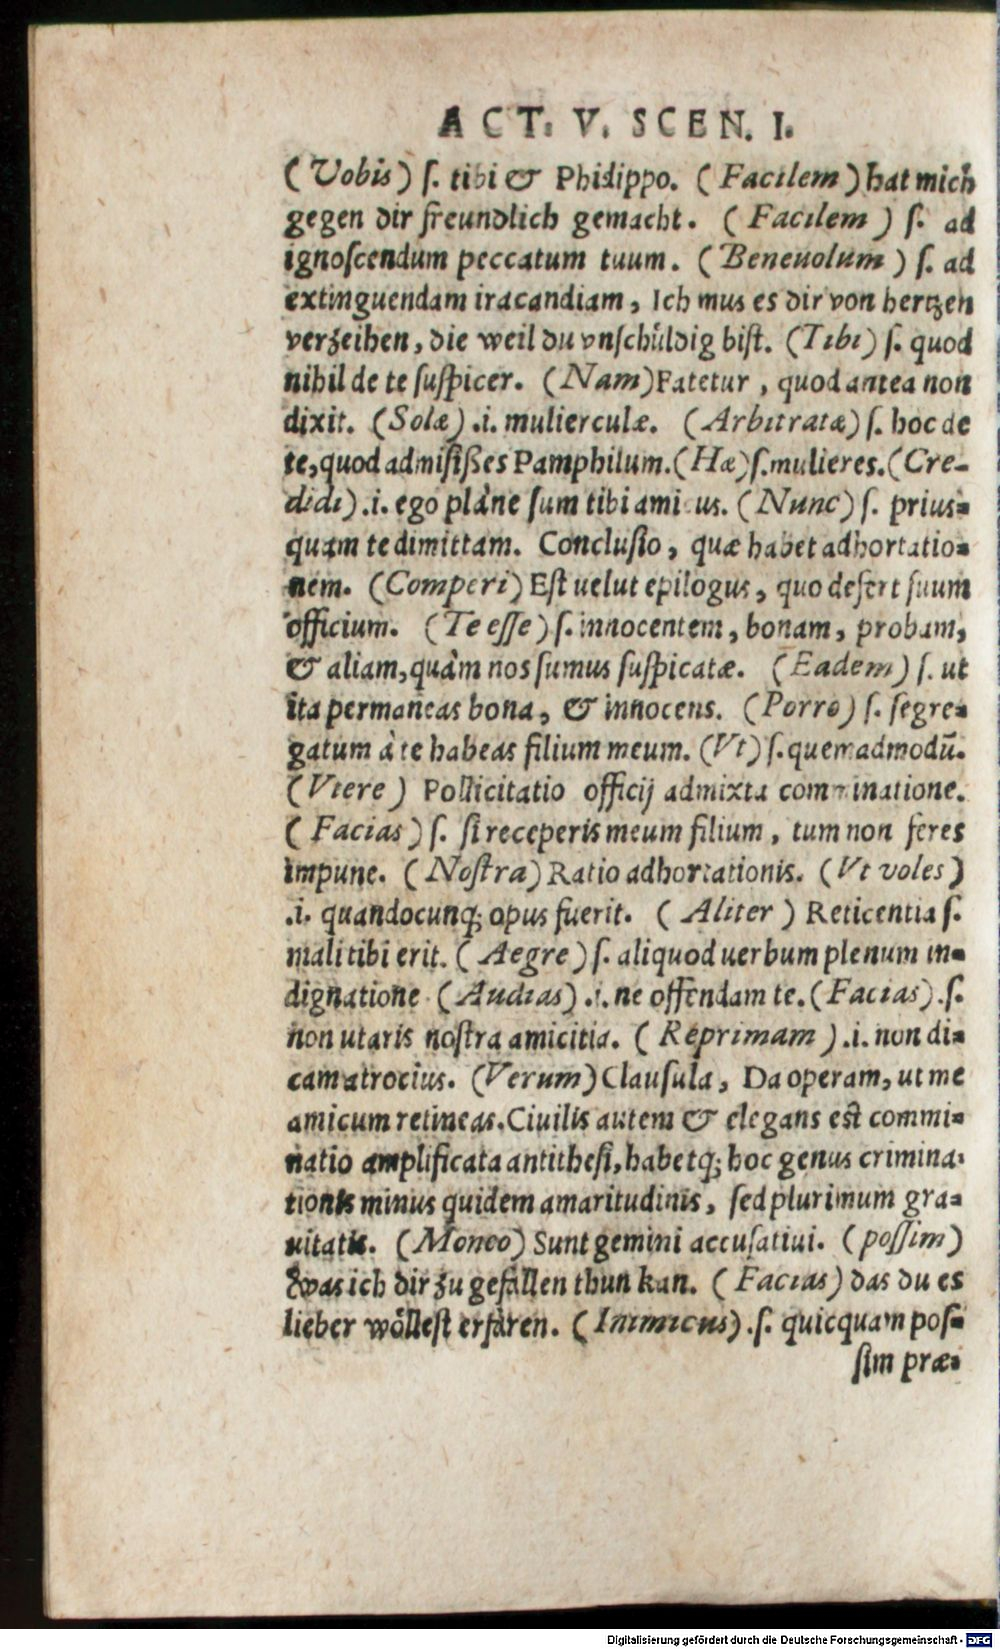 ACT. V. SCEN. I.
(Vobis) ſ. tibi & Phidippo. (Facilem) hat mich
gegen dir freundlich gemacht. (Facilem) ſ. ad
ignoſcendum peccatum tuum. (Beneuolum) ſ. ad
extinguendam iracandiam, Ich mus es dir von hertzen
verzeihen, die weil du vnſchüldig biſt. (Tibi) ſ. quod
nihil de te ſuſpicer. (Nam) Fatetur, quod antea non
dixit. (Solæ) .i. mulierculæ. (Arbitratæ) ſ. hoc de
te, quod admiſiſſes Pamphilum. (Hæ) ſ. mulieres. (Cre-
didi) .i. ego plàne ſum tibi amicus. (Nunc) ſ. prius-
quam te dimittam. Concluſio, quæ habet adhortatio-
nem. (Comperi) Eſt uelut epilogus, quo defert ſuum
officium. (Te eſſe) ſ. innocentem, bonam, probam,
& aliam, quàm nos ſumus ſuſpicatæ. (Eadem) ſ. ut
ita permaneas bona, & innocens. (Porro) ſ. ſegre-
gatum à te habeas filium meum. (Vt) ſ. quemadmodū.
(Vtere) Pollicitatio officij admixta comminatione.
(Facias) ſ. ſi receperis meum filium, tum non feres
impune. (Noſtra) Ratio adhortationis. (Vt voles)
.i. quandocunq; opus fuerit. (Aliter) Reticentia ſ.
mali tibi erit. (Aegre) ſ. aliquod uerbum plenum in-
dignatione (Audias) .i. ne offendam te. (Facias) .ſ.
non utaris noſtra amicitia. (Reprimam) .i. non di-
cam atrocius. (Verum) Clauſula, Da operam, ut me
amicum retineas. Ciuilis autem & elegans eſt commi-
natio amplificata antitheſi, habetq; hoc genus crimina-
tionis minus quidem amaritudinis, ſed plurimum gra-
uitatis. (Moneo) Sunt gemini accuſatiui. (poſſim)
Was ich dir zu gefallen thun kan. (Facias) das du es
lieber wölleſt erfaren. (Inimicus) .ſ. quicquam poſ-
ſim præ-
Digitalisierung gefördert durch die Deutsche Forschungsgemeinschaft - DFG